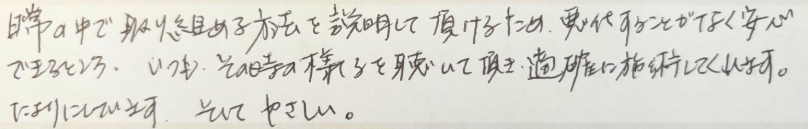 日常の中で取り組める方法を説明して頂けるため、悪化することがなく安心
できるところ。いつも、その時の様子を聴いて頂き、適確に施術してくれます。
たよりにしています。そして やさしい。